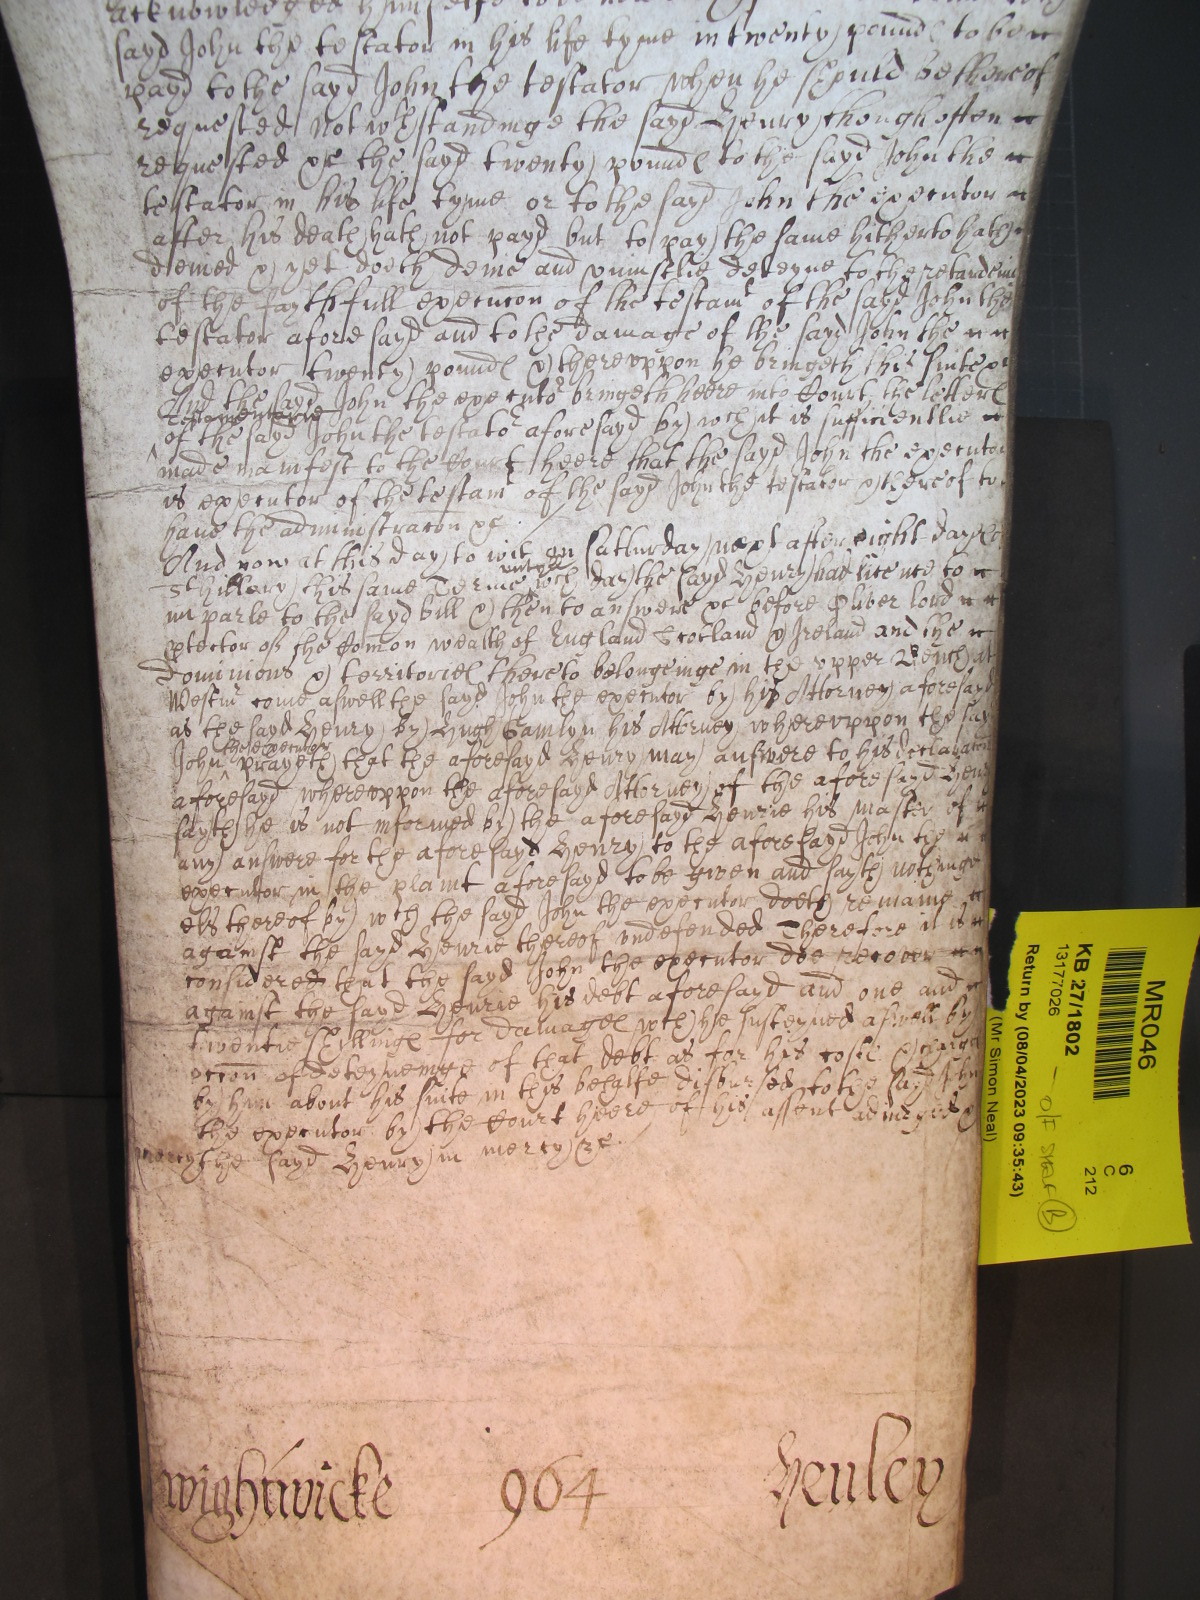 acknowledged himselfe to be
sayd John the testator in his life tyme in twenty poundℓ to bee
payd to the sayd John the testator when he should be thereof
requested Notwthstandinge the sayd Henry though often
requested &c the sayd twenty poundℓ to the sayd John the
testator in his life tyme or to the sayd John the executor
after his death hath not payd but to pay the same hitherto hath
denied & yet doeth denie and uniustlie deteyne to the retardeing
of the faythfull execucōn of the testamt of the sayd John the
testator aforesayd and to the damage of the sayd John the
executor twenty poundℓ & thereuppon he bringeth this suite &c
And the sayd John the executor bringeth heere into Court the letterℓ
Testamentarie
of the sayd John the testator aforesayd by wch it is sufficientlie
made manifest to the Court heere that the sayd John the executor
is executor of the testamt of the sayd John the testator & thereof to
have the administracōn &c
And now at this day to wit on Satturday next after eight dayes of
St Hillary this same Terme untill wch day the sayd Henry had licence to
imparle to the sayd bill & then to answere &c before Oliver lord
ptector of the Comōn wealth of England Scotland & Ireland and the
dominions & territorieℓ thereto belongeinge in the upper Bench at
Westmr come aswell the sayd John the executor by his Attorney aforesayd
as the sayd Henry by Hugh Hamlyn his Attorney whereuppon the sayd
the executor
John ^ prayeth that the aforesayd Henry may answere to his declaracōn
aforesayd whereuppon the aforesayd Attorney of the aforesayd Henry
sayth he is not informed by the aforesayd Henrie his master of
any answere for the aforesayd Henry to the aforesayd John the
executor in the plaint aforesayd to be given and sayth nothinge
els thereof by wch the sayd John the executor doeth remaine
against the sayd Henrie thereof undefended Therefore it is
considered that the sayd John the executor doe recover
against the sayd Henrie his debt aforesayd and one and
twentie shillingℓ for damageℓ wch he susteyned aswell by
occōn of deteyneinge of that debt as for his costℓ & chargeℓ
by him about his suite in this behalfe disbursed to the sayd John
the executor by the Court heere of his assent adiudged &
mercy the sayd Henry in mercy &c
Wightwicke 964 Henley
MR046
6
C
212
KB 27/1802 – O/F SHELF (B)
13177026
Return by (08/04/2023 09:35:43)
(Mr Simon Neal)